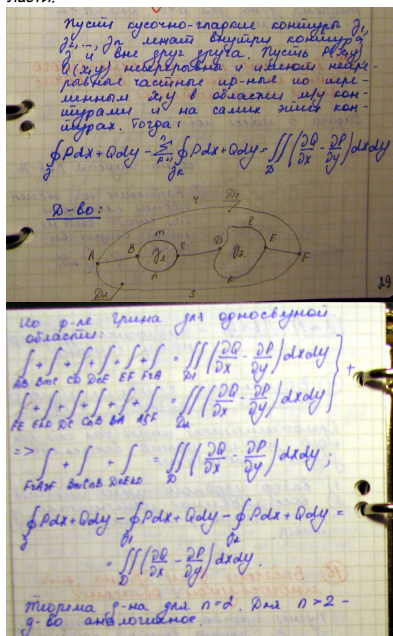 ласти.
Пусть кусочно-гладкие контуры γ₁,
γ₂,..., γn лежат внутри контура
γ и вне друг друга. Пусть P(x,y)
Q(x,y) непрерывны и имеют непре-
рывные частные пр-ные по пере-
менным x,y в области м/у кон-
турами и на самих этих кон-
турах. Тогда:
∮γ Pdx+Qdy - Σ ∮γk Pdx+Qdy = ∬D (∂Q/∂x - ∂P/∂y) dxdy
Д-во:
D₁
m
l
A B γ₁ C D γ₂ E F
n
k
D₂
s
29
По ф-ле Грина для односвязной
области:
∫AB + ∫BmC + ∫CD + ∫DlE + ∫EF + ∫FrA = ∬D₁ (∂Q/∂x - ∂P/∂y) dxdy
∫FE + ∫EkD + ∫DC + ∫CnB + ∫BA + ∫AsF = ∬D₂ (∂Q/∂x - ∂P/∂y) dxdy } +
=> ∫FrAsF + ∫BmCnB + ∫DlEkD = ∬D (∂Q/∂x - ∂P/∂y) dxdy;
∮γ Pdx+Qdy - ∮γ₁ Pdx+Qdy - ∮γ₂ Pdx+Qdy =
= ∬D (∂Q/∂x - ∂P/∂y) dxdy.
Теорема д-на для n=2. Для n>2 -
д-во аналогичное.